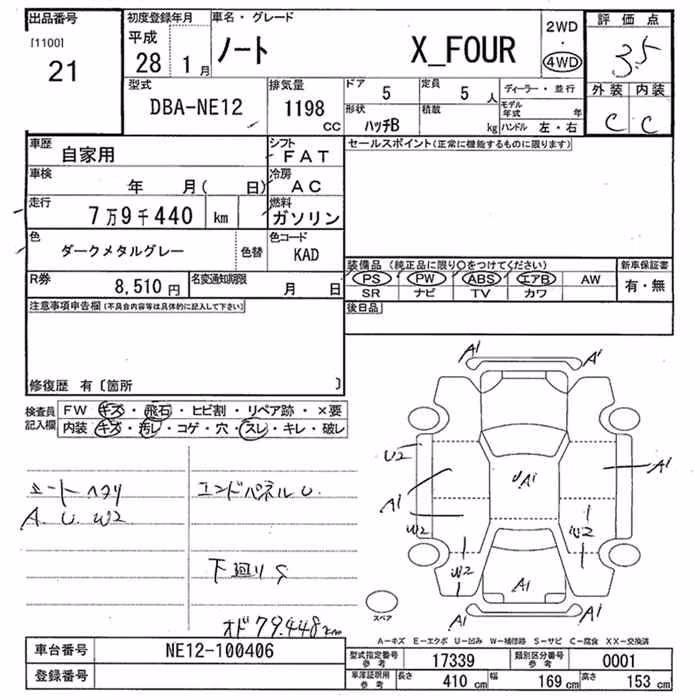 出品番号
[1100]
21
初度登録年月
平成
28 1 月
車名・グレード
ノート X_FOUR
2WD
・
4WD
評価点
3.5
外装 内装
C C
型式
DBA-NE12
排気量
1198
CC
ドア 5
定員 5 人
形状
ハッチB
積載
kg
ディーラー・並行
モデル
年式 年
ハンドル 左・右
車歴
自家用
シフト
FAT
車検
年 月( 日)
冷房
AC
走行
7万9千440 km
燃料
ガソリン
色
ダークメタルグレー
色替
色コード
KAD
R券
8,510 円
名変通知期限
月 日
セールスポイント(正常に機能するものに限ります)
装備品 (純正品に限り○をつけてください)
PS PW ABS エアB AW
SR ナビ TV カワ
新車保証書
有・無
後日品
注意事項申告欄(不具合内容等は具体的に記入して下さい)
修復歴 有〔箇所 〕
検査員
記入欄
FW キズ・飛石・ヒビ割・リペア跡・×要
内装 キズ・汚レ・コゲ・穴・スレ・キレ・破レ
シートヘタリ
A. U. W2
エンドパネル U.
下廻り S
オド 79.448km
A1 A1
U2
A1 A1
UA1
W2 W2
W2
A1
A1 A1
スペア
A-キズ E-エクボ U-凹み W-補修跡 S-サビ C-腐食 XX-交換済
車台番号 NE12-100406
登録番号
型式指定番号
参考 17339
類別区分番号
参考 0001
車庫証明用
参考 長さ 410 cm 幅 169 cm 高さ 153 cm